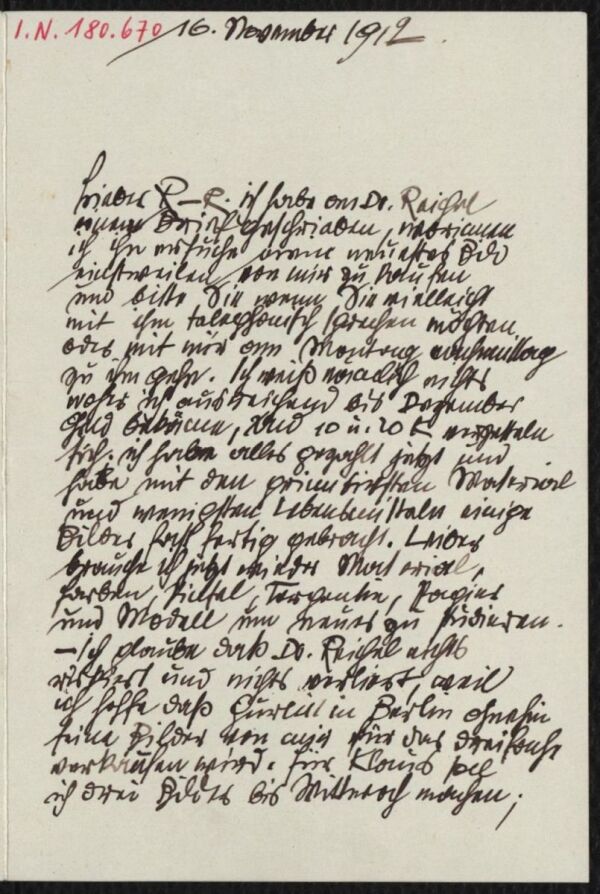 I.N. 180.670 16. November 1912.
Lieber R–R. ich habe an Dr. Reichel
einen Brief geschrieben, in
ich ihn ersuche neuestes Bild
einstweilen von mir zu kaufen
und bitte Sie wenn Sie vielleicht
mit ihm telephonisch sprechen möchten
oder mit mir am Montag nachmittag
zu ihm gehn. Ich weiß nämlich nichts
woher ich ausreichend bis Dezember
Geld bekäme, und 10 u. 20 K verzetteln
sich. ich habe alles gezahlt jetzt und
habe mit den primitivsten Material
und wenigsten Lebensmitteln einige
Bilder fast fertig gebracht. Leider
brauche ich jetzt wieder Material,
Farben, Pinsel, Terpentin, Papier
und Modell um neues zu studieren.
– Ich glaube daß Dr. Reichel nichts
riskiert und nichts verliert, weil
ich hoffe daß Gurlitt in Berlin ohnehin
seine Bilder von mir für das dreifache
verkaufen wird. für
ich drei bis Mittwoch machen;